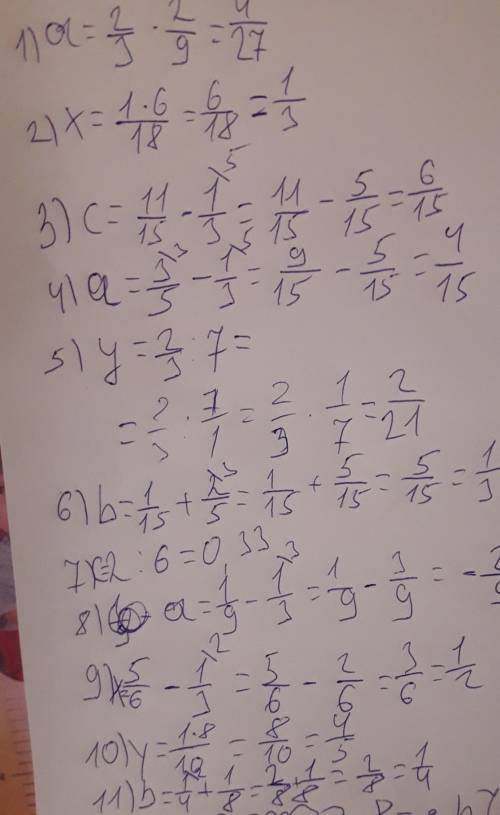 1) a = 2/3 · 2/9 = 4/27
2) x = 1·6/18 = 6/18 = 1/3
3) c = 11/15 - 1/3^5 = 11/15 - 5/15 = 6/15
4) a = 3/5^3 - 1/3^5 = 9/15 - 5/15 = 4/15
5) y = 2/3 : 7 =
= 2/3 : 7/1 = 2/3 · 1/7 = 2/21
6) b = 1/15 + /5^3 = 1/15 + 5/15 = 5/15 = 1/3
7) x=2 : 6 = 0 33
8) a = 1/9 - 1/3^3 = 1/9 - 3/9 = -2/9
9) x= 5/6 - 1/3^2 = 5/6 - 2/6 = 3/6 = 1/2
10) y = 1·8/10 = 8/10 = 4/5
11) b = 1/4^2 + 1/8 = 2/8 + 1/8 = 2/8 = 1/4